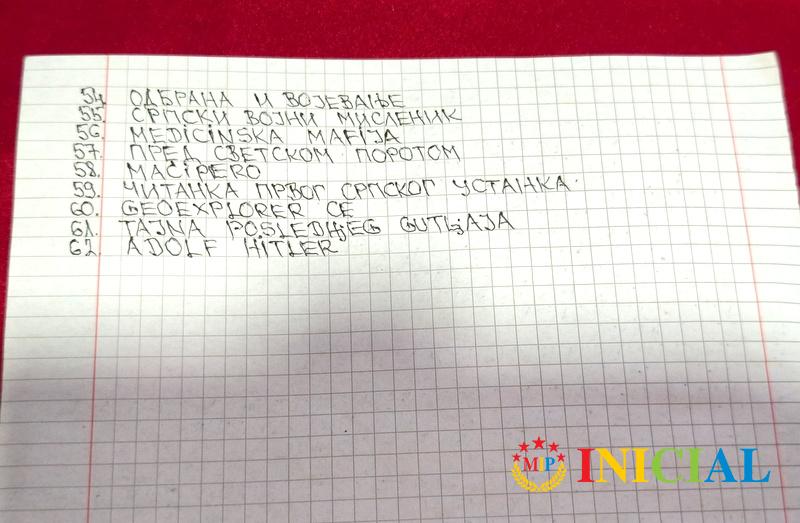 54. ОДБРАНА И ВОЈЕВАЊЕ
55. СРПСКИ ВОЈНИ МИСЛЕНИК
56. MEDICINSKA MAFIJA
57. ПРЕД СВЕТСКОМ ПОРОТОМ
58. MAČJPERO
59. ЧИТАНКА ПРВОГ СРПСКОГ УСТАНКА
60. GEOEXPLORER CE
61. TAJNA POSLEDHjEG GUTLjAJA
62. ADOLF HITLER
MIP INICIAL